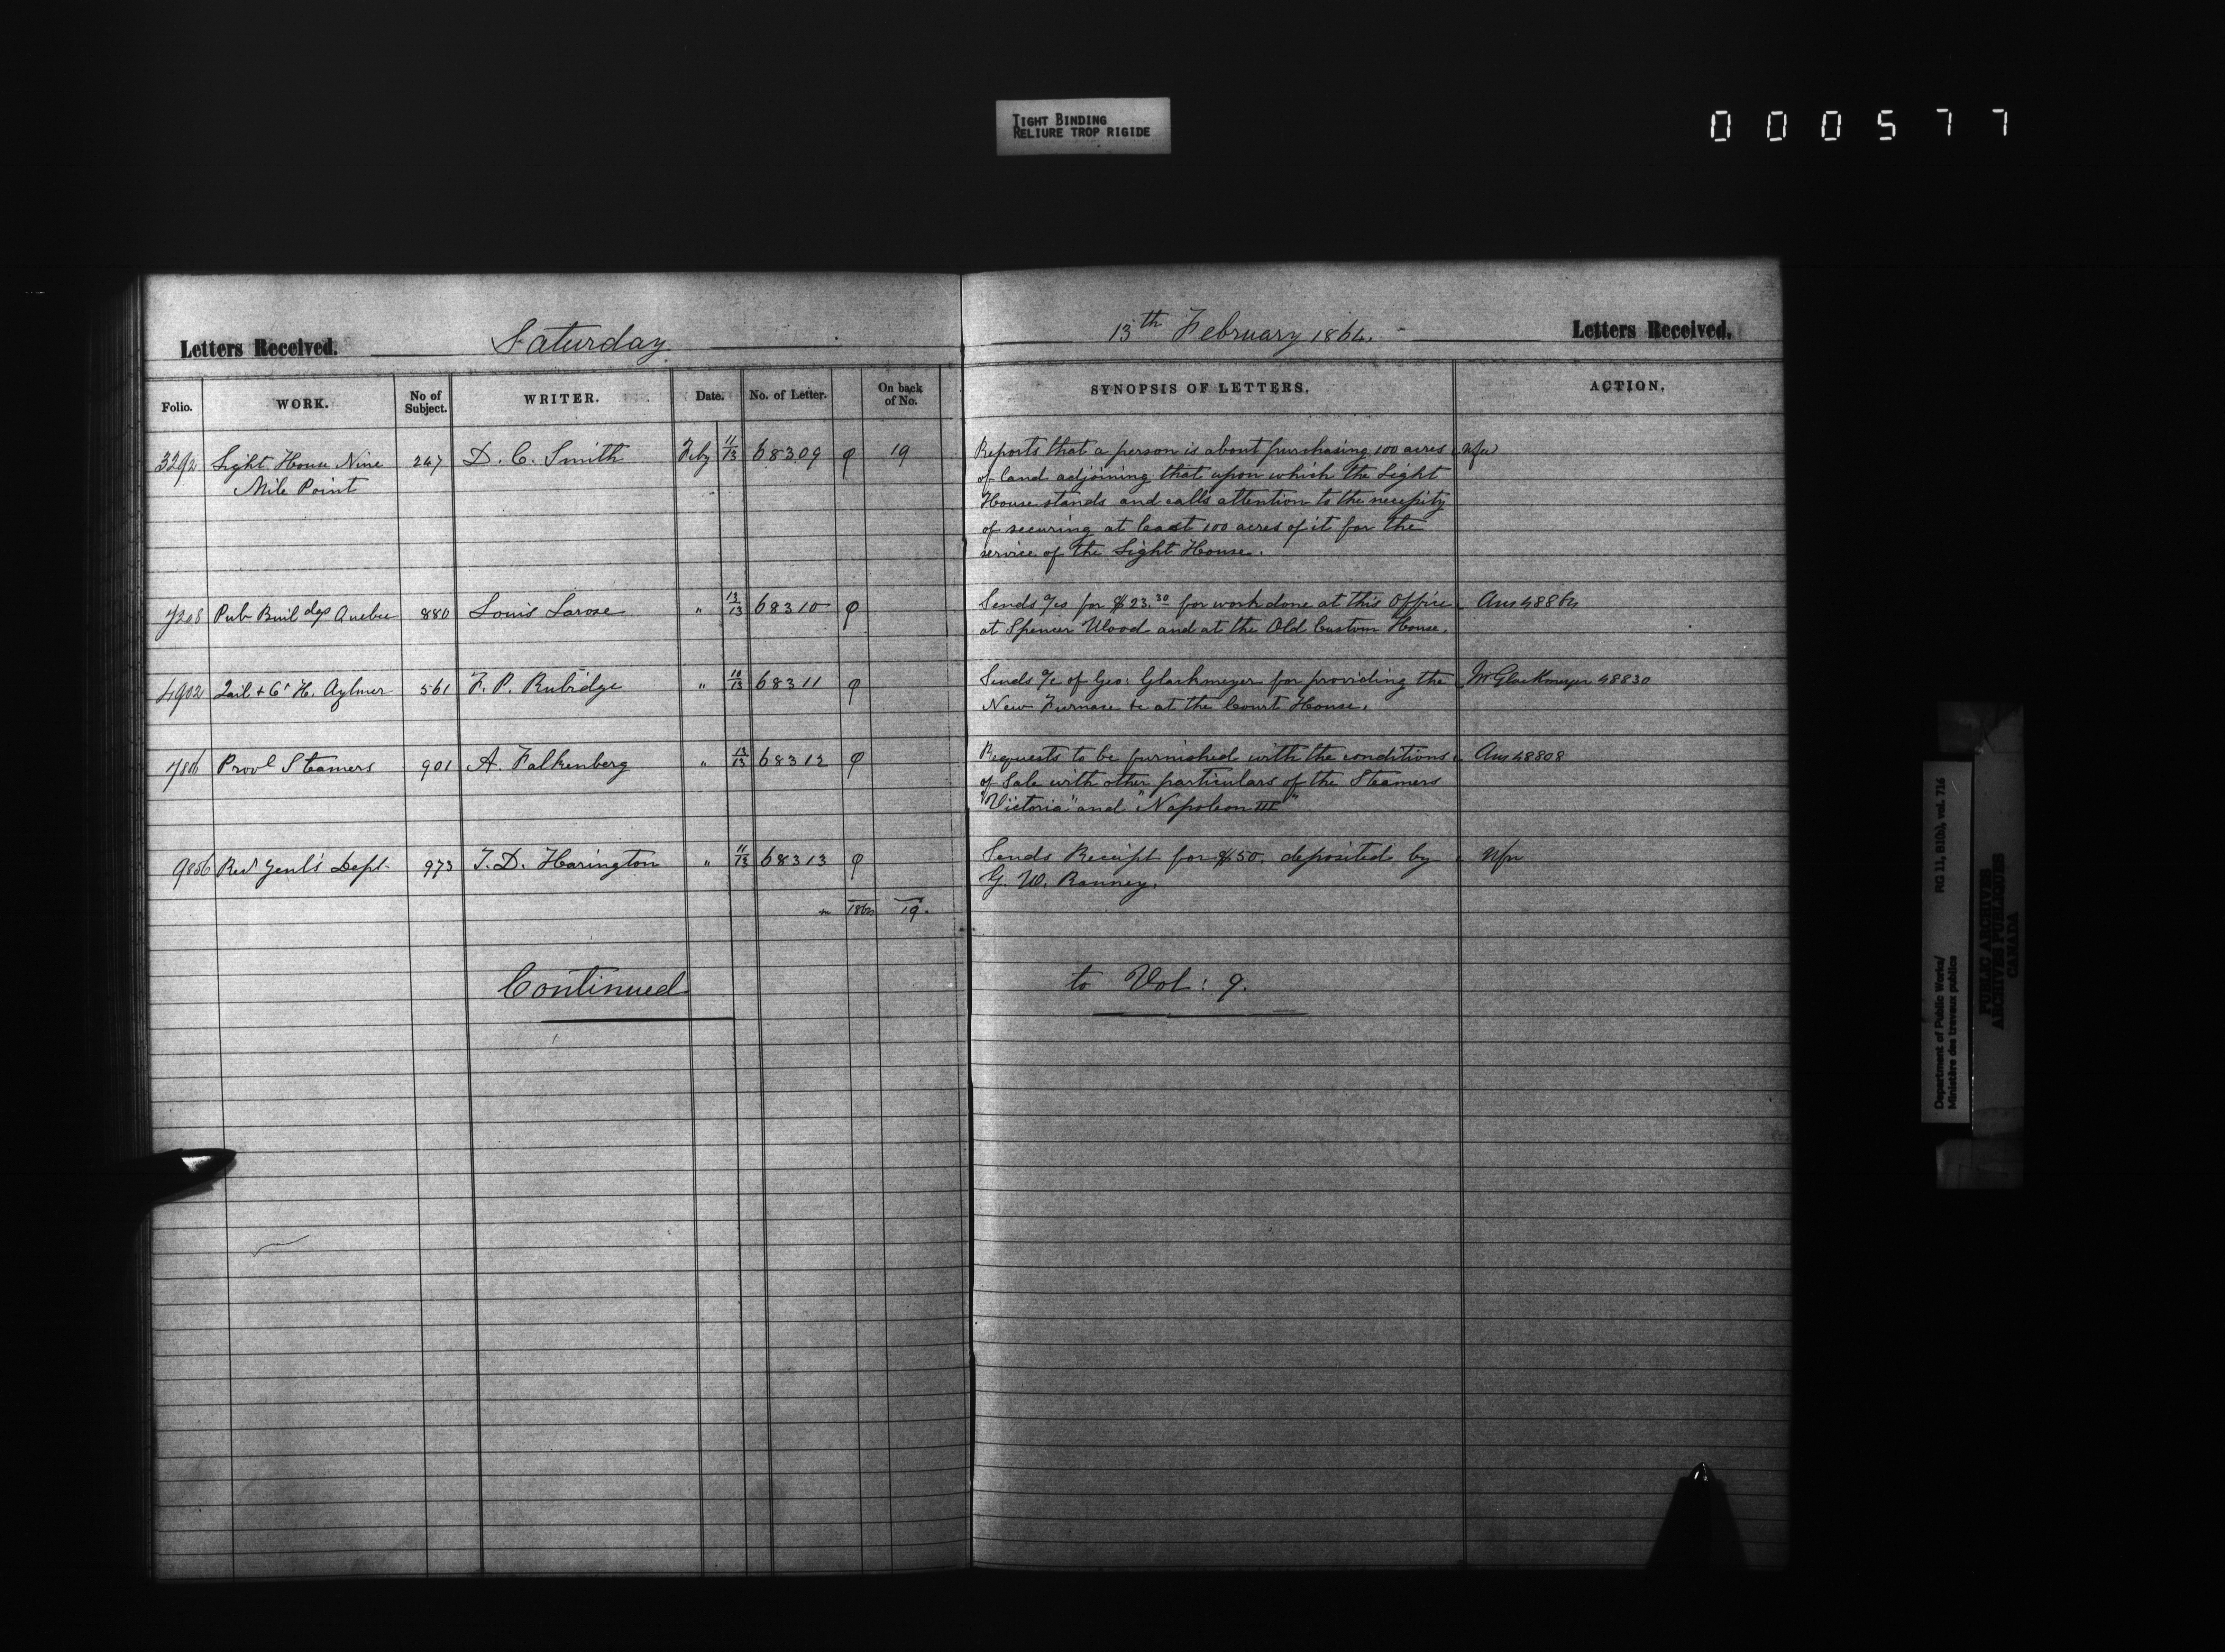 TIGHT BINDING
RELIURE TROP RIGIDE
000577
Letters Received. Saturday 13th February 1864. Letters Received.
Folio. WORK. No of Subject. WRITER. Date. No. of Letter. On back of No. SYNOPSIS OF LETTERS. ACTION.
3292 Light House Nine 247 D. C. Smith Feby 11/13 68309 φ 19 Reports that a person is about purchasing 100 acres Nfu
Mile Point of land adjoining that upon which the Light
House stands and calls attention to the necessity
of securing at least 100 acres of it for the
service of the Light House.
7208 Pub Buildgs Quebec 880 Louis Larose " 13/13 68310 φ Sends a/cs for $23.30 for work done at this Office Ans 48864
at Spencer Wood and at the Old Custom House.
4902 Jail & Ct H. Aylmer 561 F. P. Rubidge " 10/13 68311 φ Sends a/c of Geo: Glackmeyer for providing the Mr Glackmeyer 48830
New Furnace &c at the Court House.
Provl Steamers 901 A. Falkenberg " 13/13 68312 φ Requests to be furnished with the conditions Ans 48808
of Sale with other particulars of the Steamers
"Victoria" and "Napoleon III"
9856 Recr Genl's Dept. 973 T. D. Harington " 11/13 68313 φ Sends Receipt for $50. deposited by Nfu
G. W. Ranney.
19.
Continued to Vol: 9.
Department of Public Works/ RG 11, B1(b), vol. 716
Ministère des travaux publics
PUBLIC ARCHIVES
ARCHIVES PUBLIQUES
CANADA